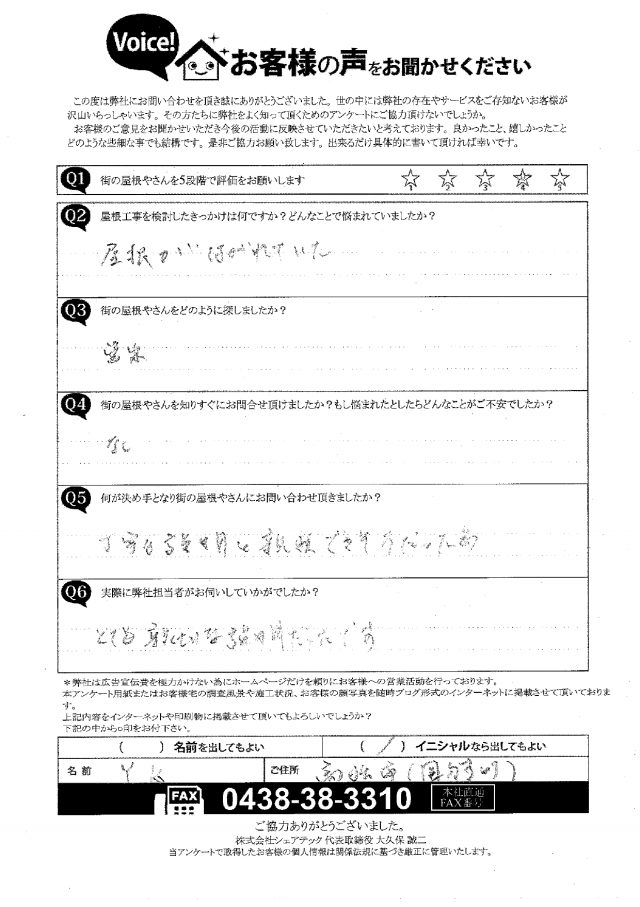 Voice!
お客様の声をお聞かせください
この度は弊社にお問い合わせを頂き誠にありがとうございました。世の中には弊社の存在やサービスをご存知ないお客様が
沢山いらっしゃいます。その方たちに弊社をよく知って頂くためのアンケートにご協力頂けないでしょうか。
お客様のご意見をお聞かせいただき今後の活動に反映させていただきたいと考えております。良かったこと、嬉しかったこと
どのような些細な事でも結構です。是非ご協力お願い致します。出来るだけ具体的に書いて頂ければ幸いです。
Q1 街の屋根やさんを5段階で評価をお願いします 1 2 3 4 5
Q2 屋根工事を検討したきっかけは何ですか?どんなことで悩まれていましたか?
屋根がはがれていた
Q3 街の屋根やさんをどのように探しましたか?
Q4 街の屋根やさんを知りすぐにお問合せ頂けましたか?もし悩まれたとしたらどんなことがご不安でしたか?
なし
Q5 何が決め手となり街の屋根やさんにお問い合わせ頂きましたか?
丁寧な説明と
Q6 実際に弊社担当者がお伺いしていかがでしたか?
とても親切な説明だったです
*弊社は広告宣伝費を極力かけない為にホームページだけを頼りにお客様への営業活動を行っております。
本アンケート用紙またはお客様宅の調査風景や施工状況、お客様の顔写真を随時ブログ形式のインターネットに掲載させて頂いておりま
す。
上記内容をインターネットや印刷物に掲載させて頂いてもよろしいでしょうか?
下記の中から○印をお付下さい。
( ) 名前を出してもよい ( / ) イニシャルなら出してもよい
名前 Y K ご住所
FAX 0438-38-3310 本社直通 FAX番号
ご協力ありがとうございました。
株式会社シェアテック 代表取締役 大久保 誠二
当アンケートで取得したお客様の個人情報は関係法規に基づき厳正に管理いたします。